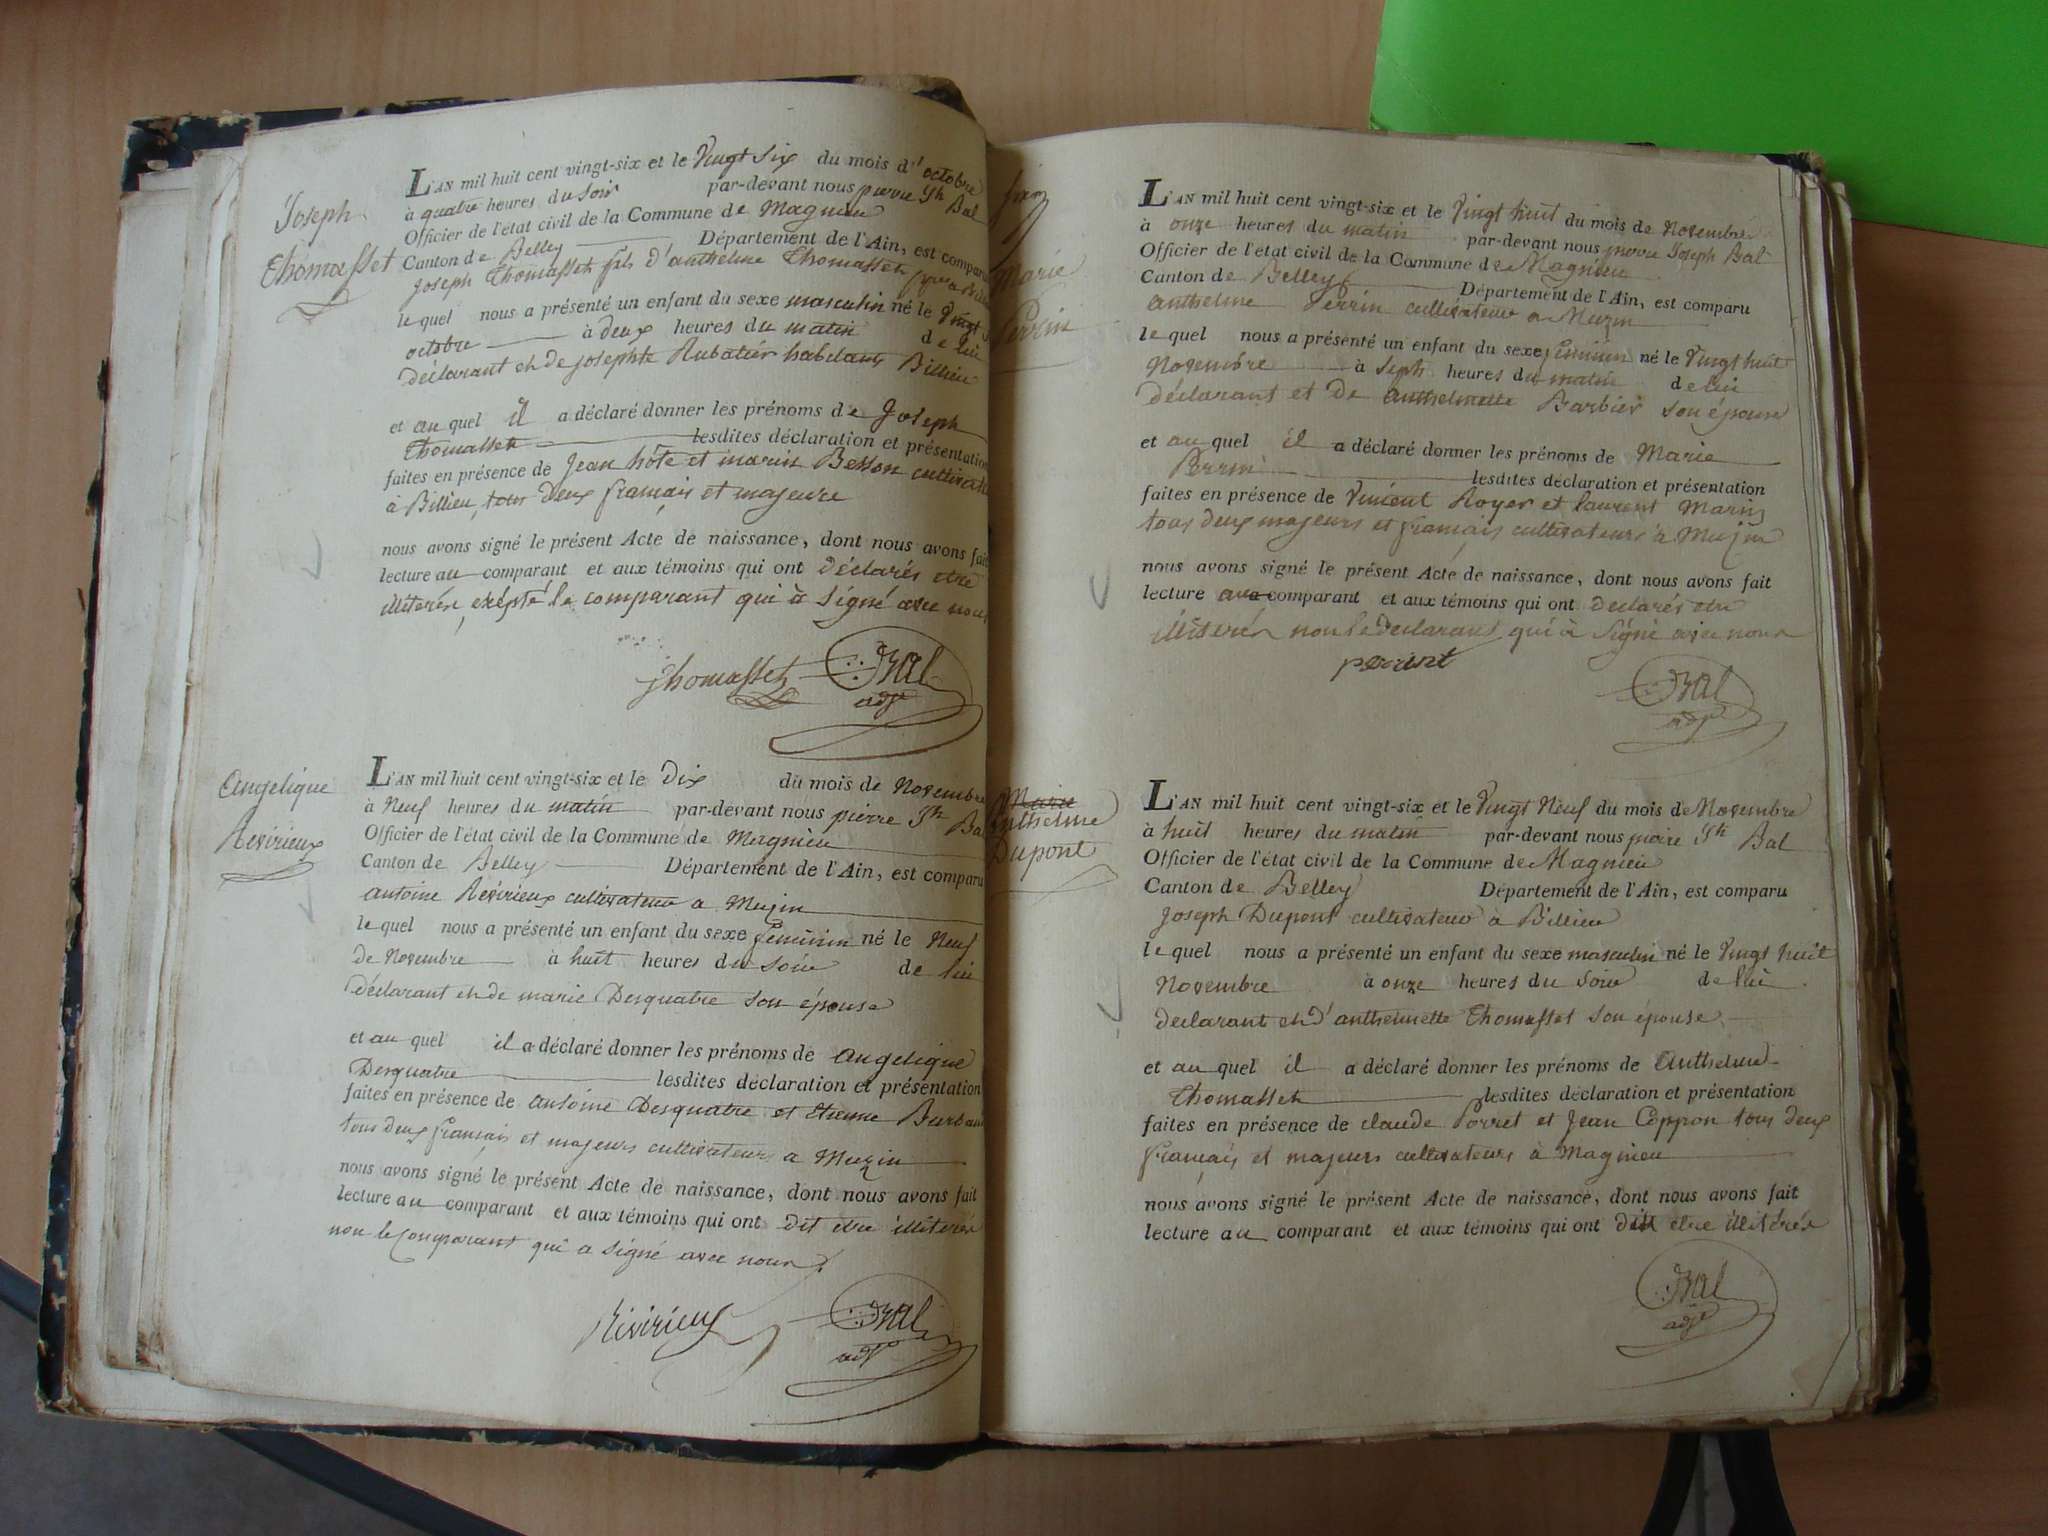 Joseph
Thomasset
L'AN mil huit cent vingt-six et le Vingt Six du mois d'octobre
à quatre heures du soir par-devant nous pierre Jh Bal
Officier de l'état civil de la Commune de Magnieu
Canton de Belley Département de l'Ain, est comparu
joseph Thomasset fils d'anthelme Thomasset
le quel nous a présenté un enfant du sexe masculin né le Vingt
octobre à deux heures du matin de lui
déclarant et de josephte Rubatier habitant Billieu
et au quel il a déclaré donner les prénoms de Joseph
Thomasset lesdites déclaration et présentation
faites en présence de Jean hôte et marin Besson
à Billieu, tous deux français et majeure
nous avons signé le présent Acte de naissance, dont nous avons fait
lecture au comparant et aux témoins qui ont déclarés etre
illiterés, exépté le comparant qui à signé avec nous
Thomasset Bal
adjt
Angelique
Revirieux
L'AN mil huit cent vingt-six et le Dix du mois de Novembre
à Neuf heures du matin par-devant nous pierre Jh Bal
Officier de l'état civil de la Commune de Magnieu
Canton de Belley Département de l'Ain, est comparu
antoine Revirieux cultivateur a Muzin
le quel nous a présenté un enfant du sexe feminin né le Neuf
de Novembre à huit heures du soir de lui
déclarant et de marie Desquatre son épouse
et au quel il a déclaré donner les prénoms de angelique
Desquatre lesdites déclaration et présentation
faites en présence de antoine Desquatre et Etienne
tous deux français et majeurs cultivateurs a Muzin
nous avons signé le présent Acte de naissance, dont nous avons fait
lecture au comparant et aux témoins qui ont dit etre illiterés
non le comparant qui a signé avec nous
Revirieux Bal
adjt
Marie
Perrin
L'AN mil huit cent vingt-six et le Vingt huit du mois de Novembre
à onze heures du matin par-devant nous pierre Joseph Bal
Officier de l'état civil de la Commune de Magnieu
Canton de Belley Département de l'Ain, est comparu
anthelme Perrin cultivateur a Muzin
le quel nous a présenté un enfant du sexe feminin né le Vingt huit
Novembre à Sept heures du matin de lui
déclarant et de anthelmette Barbier son épouse
et au quel il a déclaré donner les prénoms de Marie
Perrin lesdites déclaration et présentation
faites en présence de Vincent Royer et laurent Marin
tous deux majeurs et français cultivateurs à Muzin
nous avons signé le présent Acte de naissance, dont nous avons fait
lecture comparant et aux témoins qui ont declarés etre
illiterés non le declarant qui à signé avec nous
perrint
Bal
adjt
Marie
Anthelme
Dupont
L'AN mil huit cent vingt-six et le Vingt Neuf du mois de Novembre
à huit heures du matin par-devant nous pierre Jh Bal
Officier de l'état civil de la Commune de Magnieu
Canton de Belley Département de l'Ain, est comparu
Joseph Dupont cultivateur à Billieu
le quel nous a présenté un enfant du sexe masculin né le Vingt huit
Novembre à onze heures du soir de lui
declarant et d'anthelmette Thomasset son épouse
et au quel il a déclaré donner les prénoms de Anthelme
Thomasset lesdites déclaration et présentation
faites en présence de claude Porret et Jean Coppon tous deux
français et majeurs cultivateurs à Magnieu
nous avons signé le présent Acte de naissance, dont nous avons fait
lecture au comparant et aux témoins qui ont dit etre illitérés
Bal
adjt